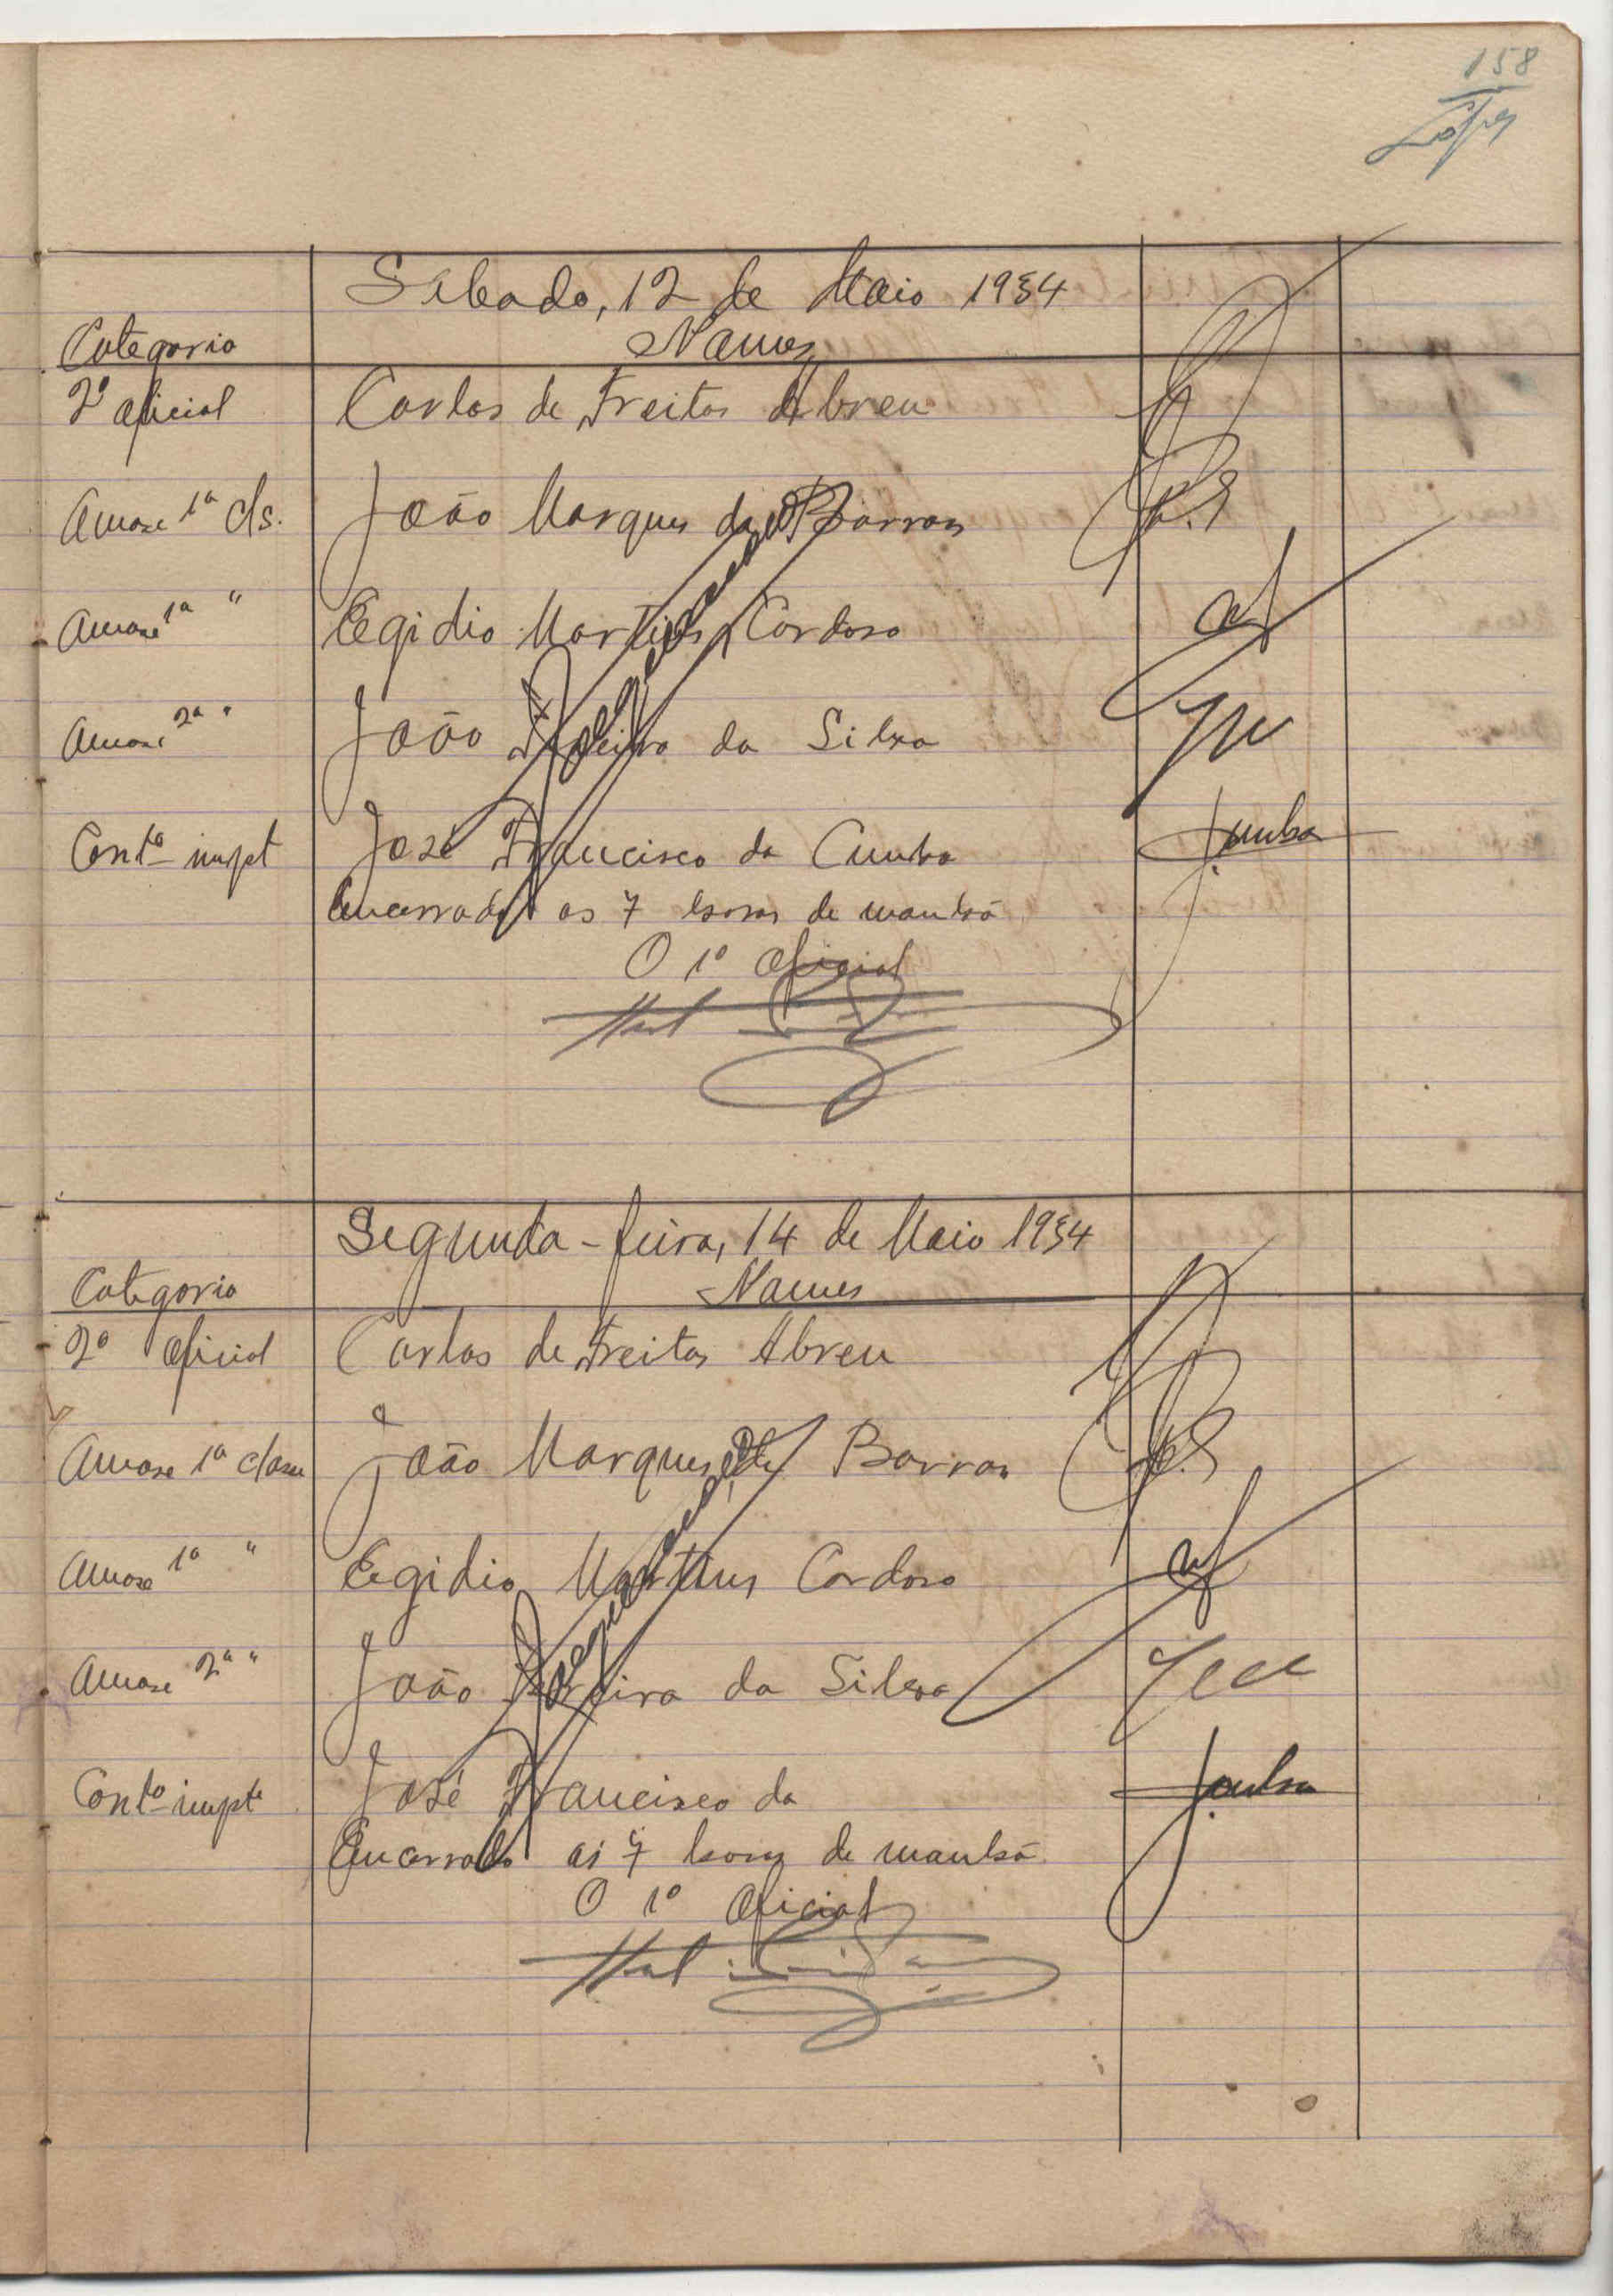 158
Sábado, 12 de Maio 1934
Categoria Nomes
2º oficial Carlos de Freitas Abreu
Amase 1ª cls. João Marques de Barros
Amase 1ª " Egidio Martins Cardoso
Amase 2ª " João Pereira da Silva
Contº impt José Francisco da Cunha JCunha
Encerrado as 7 horas de manhã
O 1º Oficial
Segunda-feira, 14 de Maio 1934
Categoria Nomes
2º oficial Carlos de Freitas Abreu
Amase 1ª classe João Marques de Barros
Amase 1ª " Egidio Martins Cardoso
Amase 2ª " João Pereira da Silva
Contº impte José Francisco da JCunha
Encerrado as 7 horas de manhã
O 1º Oficial